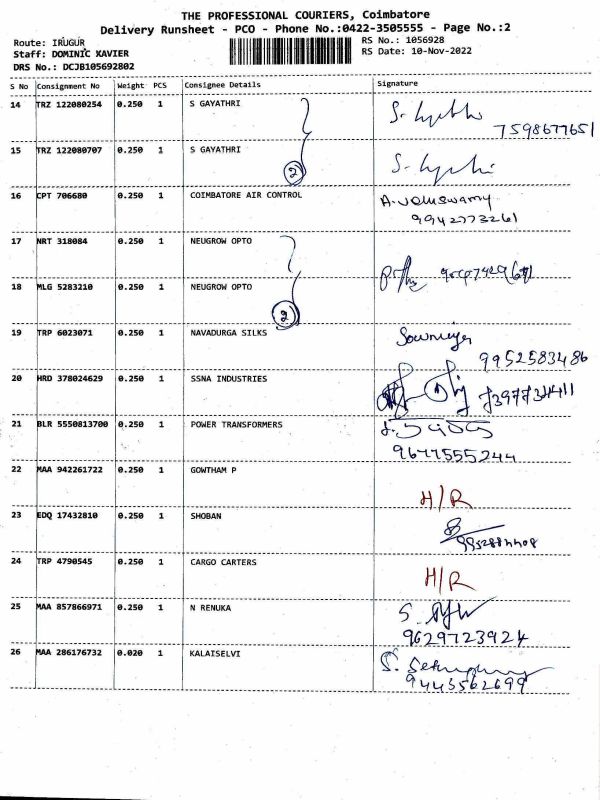 THE PROFESSIONAL COURIERS, Coimbatore
Delivery Runsheet - PCO - Phone No.:0422-3505555 - Page No.:2
Route: IRUGUR
RS No.: 1056928
Staff: DOMINIC XAVIER
RS Date: 10-Nov-2022
DRS No.: DCJB105692802
S No Consignment No Weight PCS Consignee Details Signature
14 TRZ 122080254 0.250 1 S GAYATHRI
7598677651
15 TRZ 122080707 0.250 1 S GAYATHRI
2
16 CPT 706680 0.250 1 COIMBATORE AIR CONTROL A. Veluswamy
9942773261
17 NRT 318084 0.250 1 NEUGROW OPTO
18 MLG 5283210 0.250 1 NEUGROW OPTO
2
19 TRP 6023071 0.250 1 NAVADURGA SILKS Sowmiya
9952583486
20 HRD 378024629 0.250 1 SSNA INDUSTRIES
21 BLR 5550813700 0.250 1 POWER TRANSFORMERS
9677555244
22 MAA 942261722 0.250 1 GOWTHAM P
H/R
23 EDQ 17432810 0.250 1 SHOBAN
24 TRP 4790545 0.250 1 CARGO CARTERS
H/R
25 MAA 857866971 0.250 1 N RENUKA
9629723924
26 MAA 286176732 0.020 1 KALAISELVI
9443562699